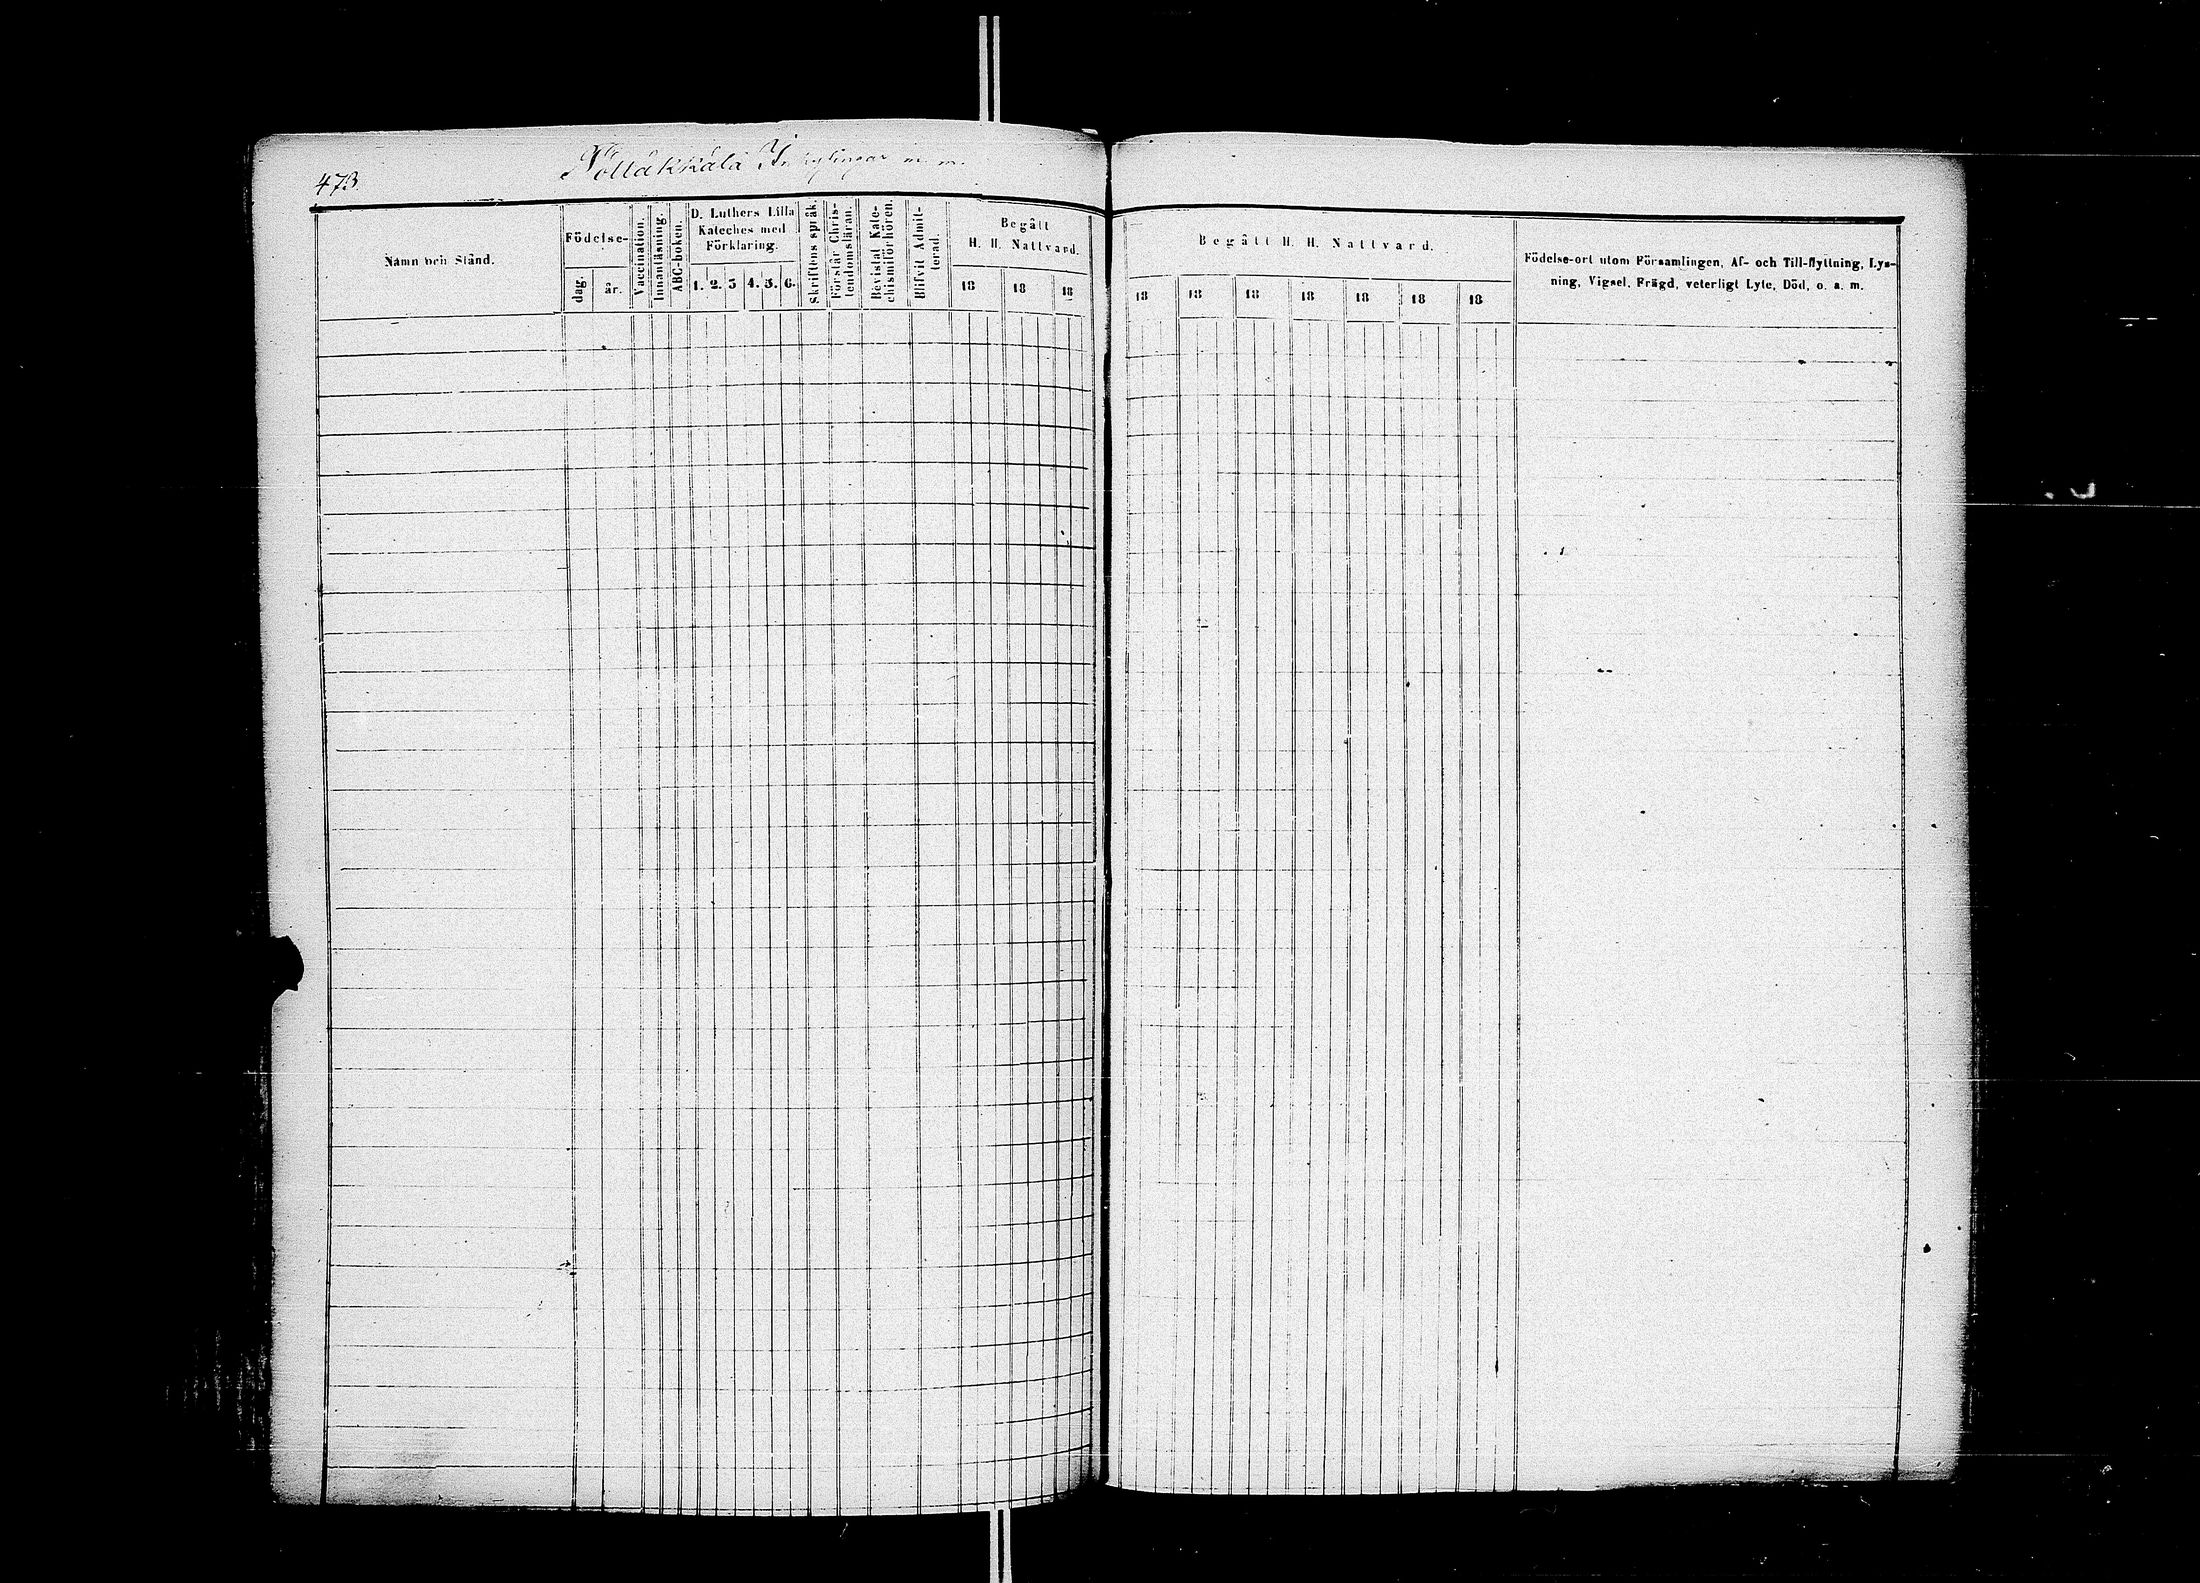 473.
Inhysingar m. m.
Namn och Stånd.
Födelse-
dag.
år.
Vaccination.
Innantläsning.
ABC-boken.
D. Luthers Lilla
Kateches med
Förklaring.
1. 2. 3 4. 5. 6.
Skriftens språk.
Förstår Chris-
tendomsläran.
Bevistat Kate-
chismiförhören.
Blifvit Admit-
terad.
Begått
H. H. Nattvard.
18 18 18
Begått H. H. Nattvard.
18 18 18 18 18 18 18
Födelse-ort utom Församlingen, Af- och Till-flyttning, Lys-
ning, Vigsel, Frägd, veterligt Lyte, Död, o. a. m.